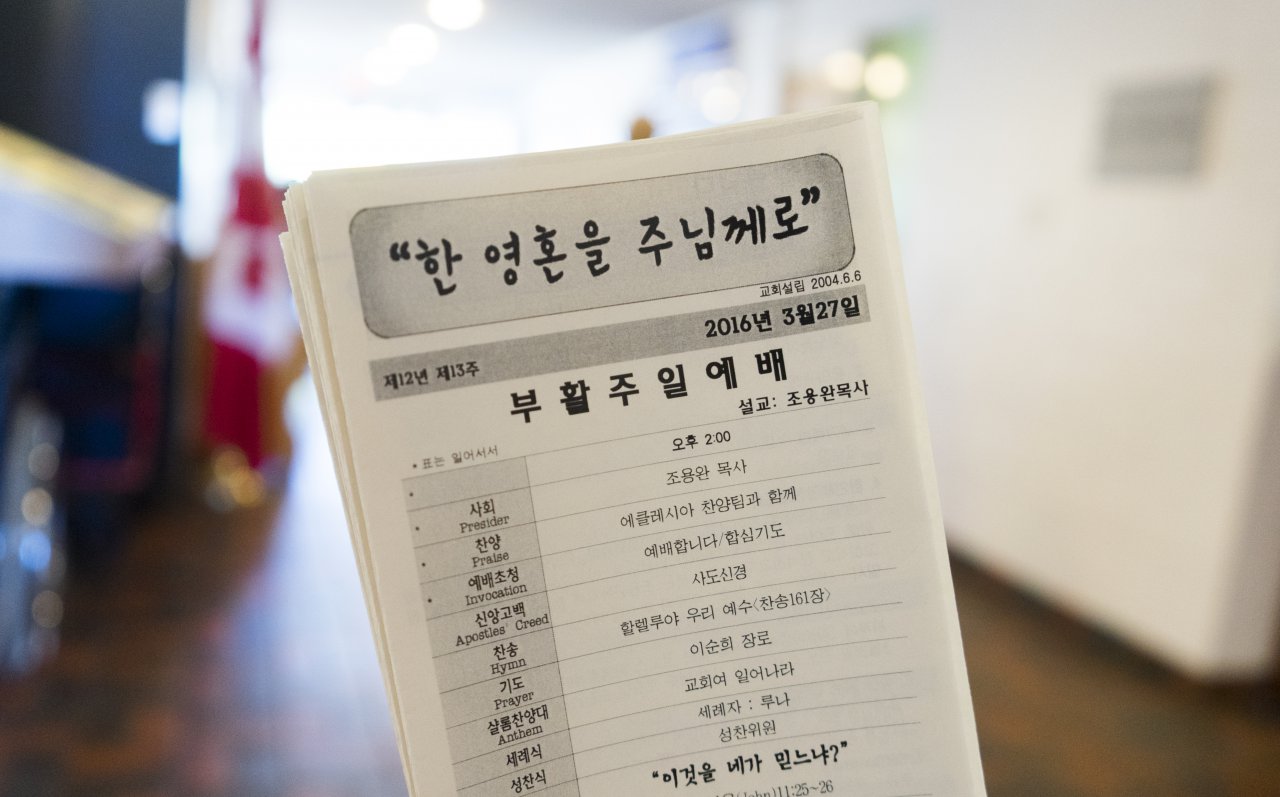 “한 영혼을 주님께로”
교회설립 2004.6.6
제12년 제13주 2016년 3월27일
부 활 주 일 예 배
설교: 조용완목사
* 표는 일어서서 오후 2:00
사회 조용완 목사
Presider
찬양 에클레시아 찬양팀과 함께
Praise
예배초청 예배합니다/합심기도
Invocation
신앙고백 사도신경
Apostles' Creed
찬송 할렐루야 우리 예수<찬송161장>
Hymn
기도 이순희 장로
Prayer
샬롬찬양대 교회여 일어나라
Anthem
세례식 세례자 : 루나
성찬식 성찬위원
“이것을 네가 믿느냐?”
(John)11:25~26